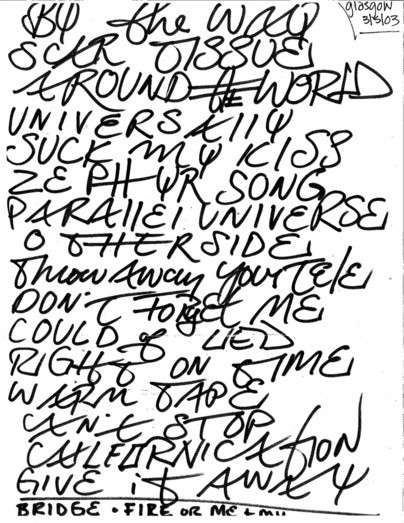 glasgow
3/5/03
BY the WAY
SCAR TISSUE
AROUND THE WORLD
UNIVERSALLY
SUCK MY KISS
ZEPHYR SONG
PARALLEL UNIVERSE
OTHERSIDE
THROW AWAY YOUR TELE
DON'T FORGET ME
COULD of LIED
RIGHT ON TIME
WARM TAPE
CAN'T STOP
CALIFORNICATION
GIVE it AWAY
BRIDGE • FIRE OR ME + MY